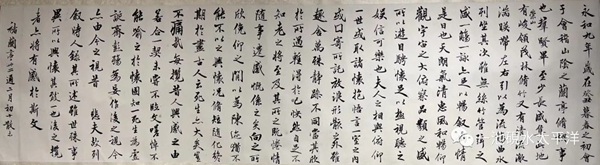 永和九年歲在癸丑暮春之初會
于會稽山陰之蘭亭脩禊事
也群賢畢至少長咸集此地
有崇領茂林脩竹又有清流激
湍暎帶左右引以為流觴曲水
列坐其次雖無絲竹管弦之
盛一觴一詠亦足以暢敘幽情
是日也天朗氣清惠風和暢仰
觀宇宙之大俯察品類之盛
所以遊目騁懷足以極視聽之
娛信可樂也夫人之相與俯仰
一世或取諸懷抱悟言一室之內
或因寄所託放浪形骸之外雖
趣舍萬殊靜躁不同當其欣
於所遇暫得於己快然自足不
知老之將至及其所之既惓情
隨事遷感慨係之矣向之所
欣俛仰之間以為陳迹猶不
能不以之興懷況脩短隨化終
期於盡古人云死生亦大矣豈
不痛哉每攬昔人興感之由
若合一契未嘗不臨文嗟悼不
能喻之於懷固知一死生為虛
誕齊彭殤為妄作後之視今
亦由今之視昔 悲夫故列
敘時人錄其所述雖世殊事
異所以興懷其致一也後之攬
者亦將有感於斯文
蘭亭 二月初十
水太平洋